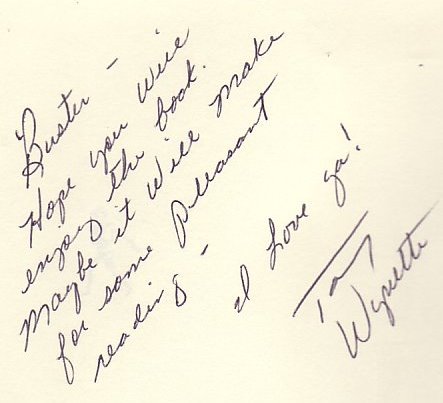 Buster –
Hope you will
enjoy the book.
Maybe it will make
for some pleasant
reading –
I love ya!
Tammy
Wynette